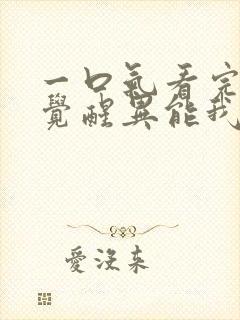 一口氣看完
覺醒異能我
愛沒來